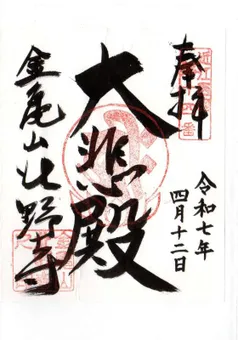 奉拝
令和七年
四月十二日
大悲殿
金亀山北野寺